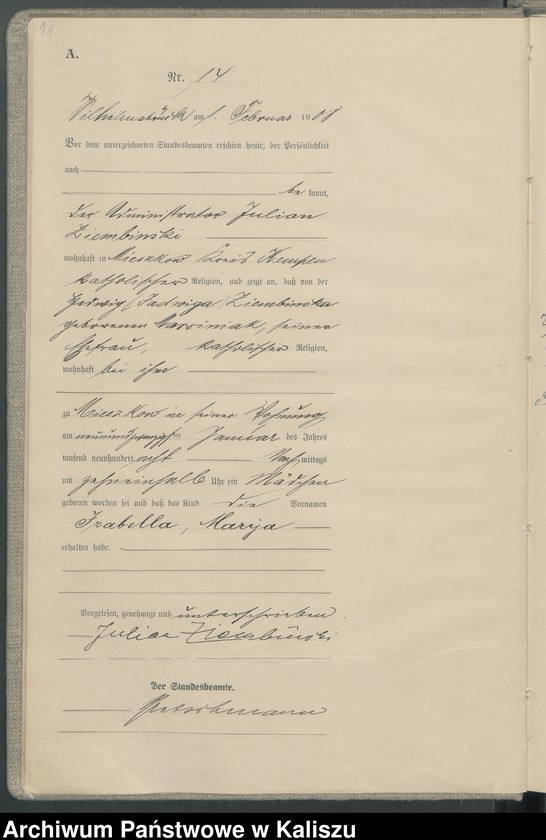 14
A.
Nr. 14
Wilhelmsbrück am 1. Februar 1908
Vor dem unterzeichneten Standesbeamten erschien heute, der Persönlichkeit
nach
be kannt,
der Administrator Julian
Ziembinski
wohnhaft in Mieczkow Kreis Kempen
katholischer Religion, und zeigt an, daß von der
Hedwig (Jadwiga) Ziembinska
geborenen, seiner
Ehefrau, katholischer Religion,
wohnhaft bei ihm
zu Mieczkow in seiner Wohnung
am neunundzwanzigsten Januar des Jahres
tausend neunhundert acht Nachmittags
um zehneinhalb Uhr ein Mädchen
geboren worden sei und daß das Kind die Vornamen
Izabella, Marija
erhalten habe.
Vorgelesen, genehmigt und unterschrieben
Julian Ziembinski
Der Standesbeamte.
Archiwum Państwowe w Kaliszu